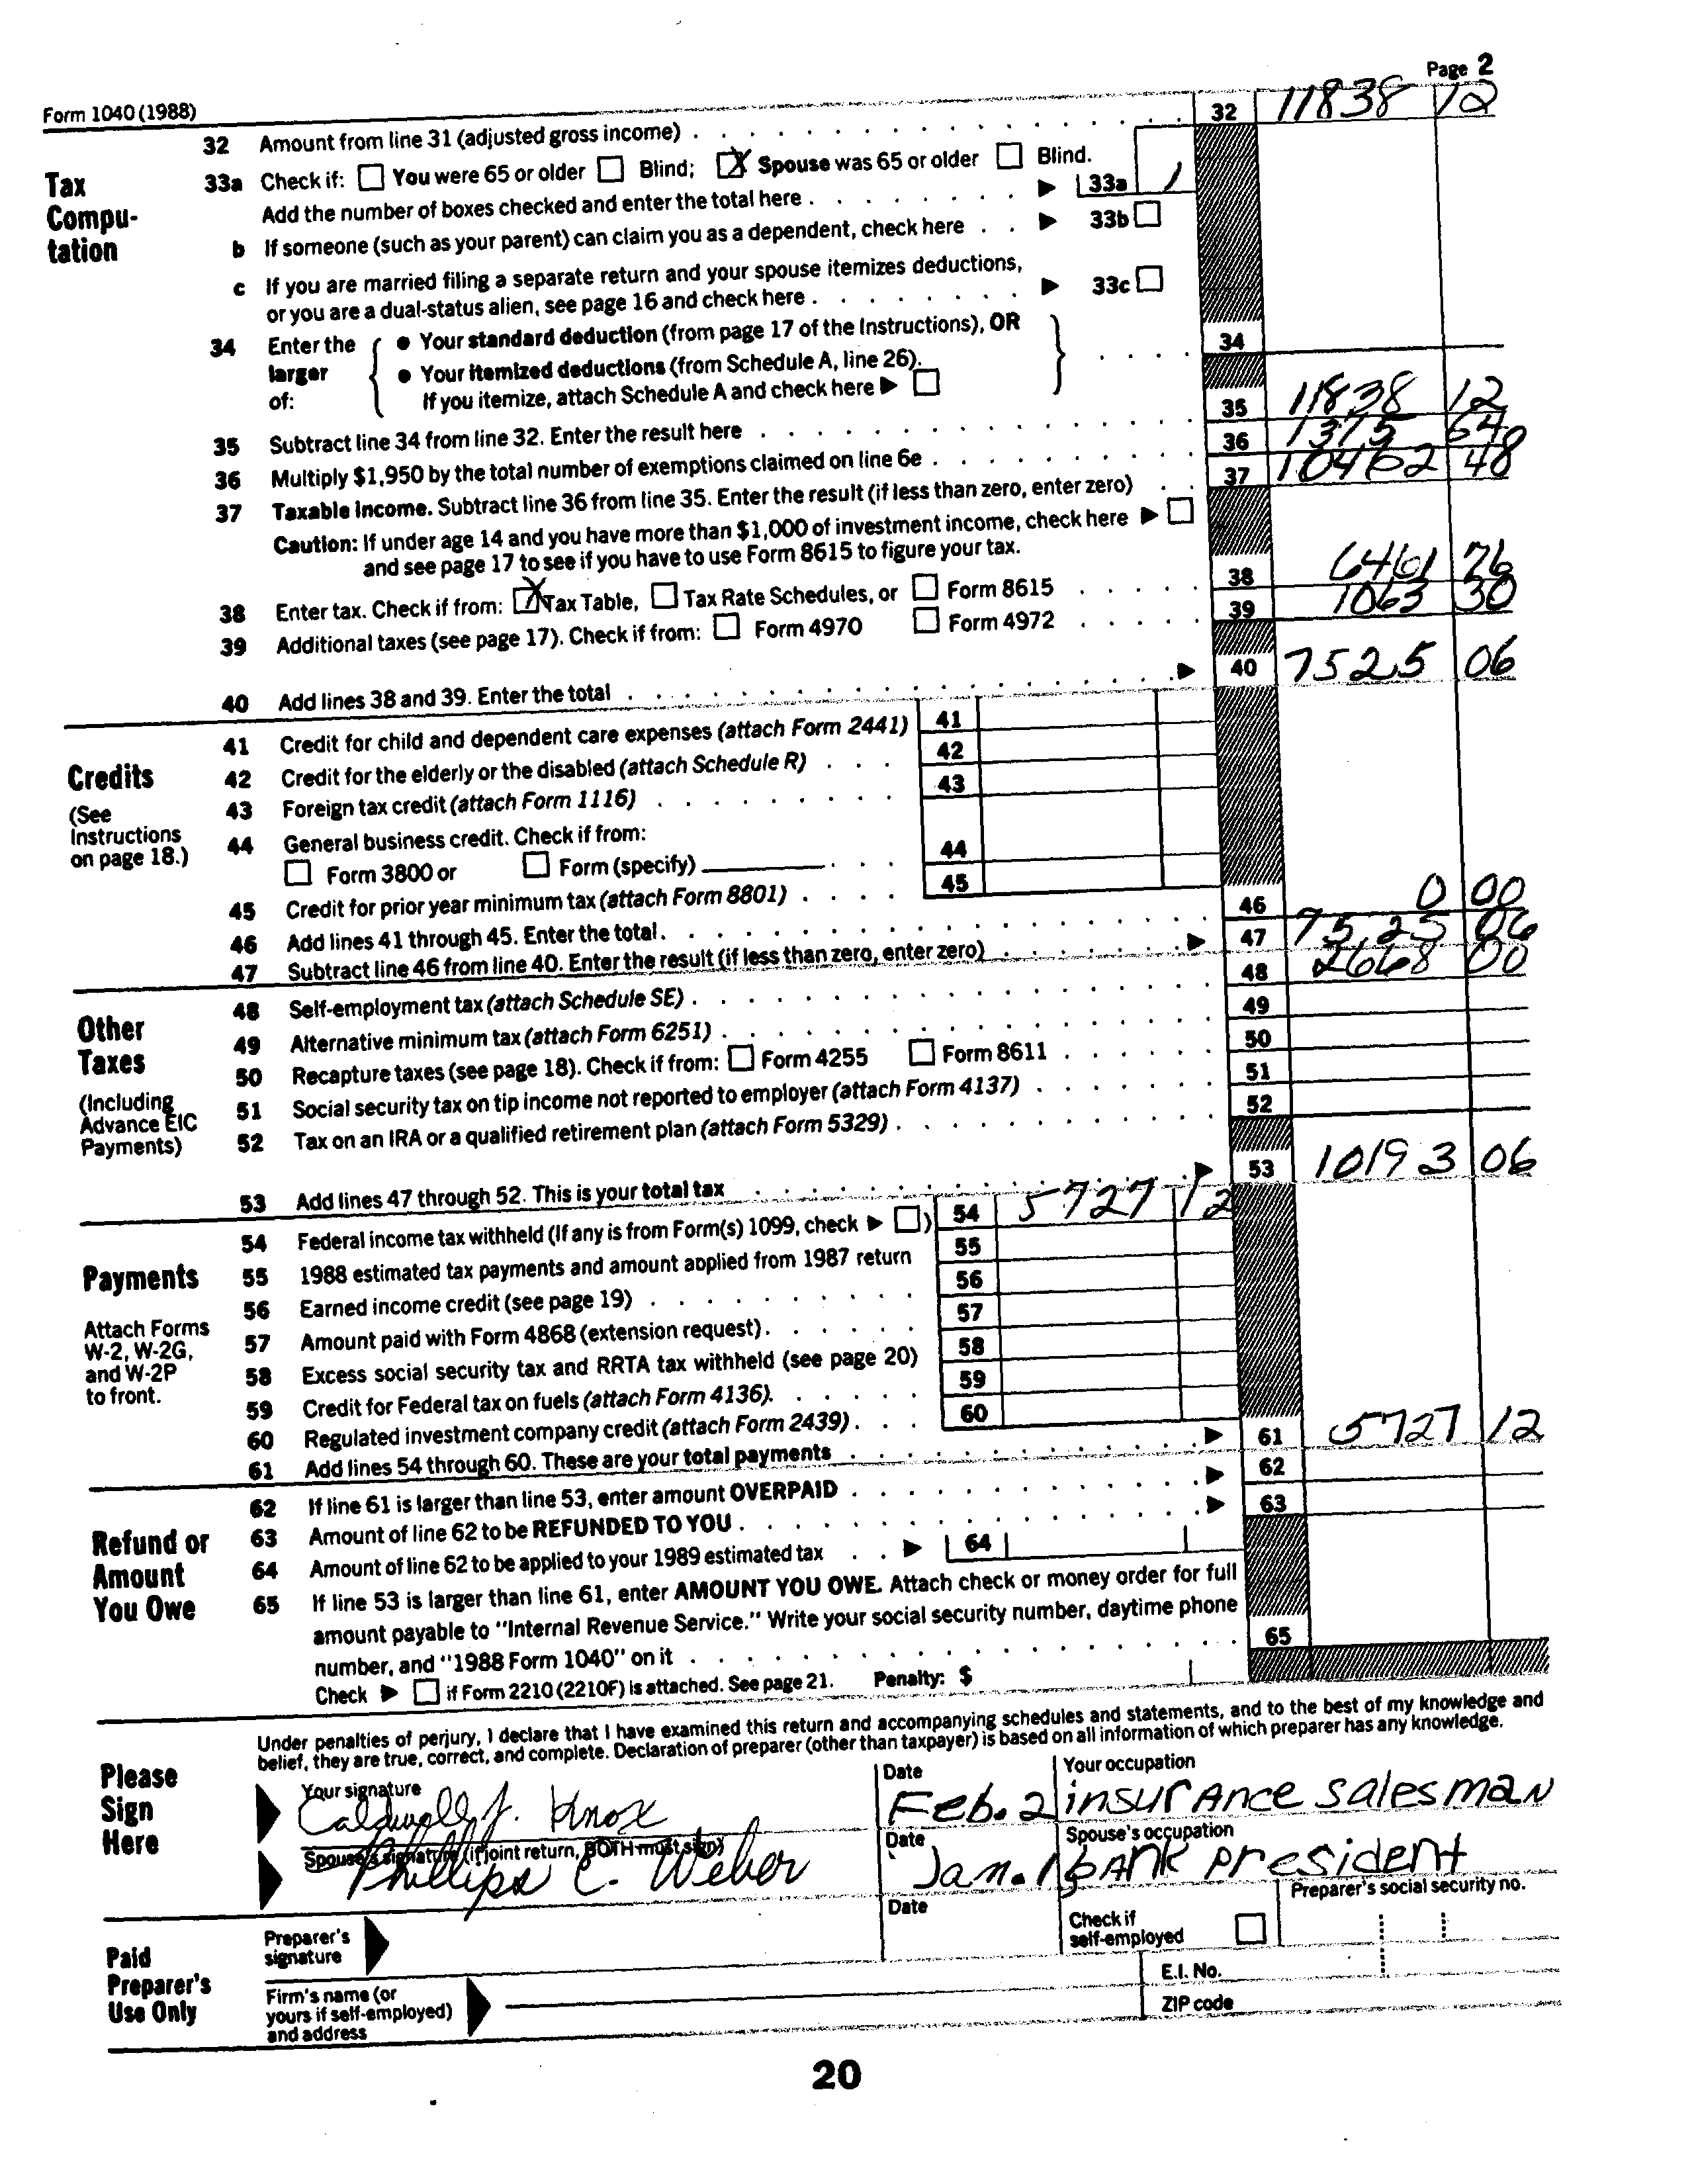 Page 2
Form 1040 (1988)
32 Amount from line 31 (adjusted gross income) 32 11838 12
Tax Computation
33a Check if: You were 65 or older Blind; X Spouse was 65 or older Blind.
Add the number of boxes checked and enter the total here 33a 1
b If someone (such as your parent) can claim you as a dependent, check here 33b
c If you are married filing a separate return and your spouse itemizes deductions,
or you are a dual-status alien, see page 16 and check here 33c
34 Enter the larger of:
• Your standard deduction (from page 17 of the Instructions), OR
• Your itemized deductions (from Schedule A, line 26).
If you itemize, attach Schedule A and check here
34
35 Subtract line 34 from line 32. Enter the result here 35 11838 12
36 Multiply $1,950 by the total number of exemptions claimed on line 6e 36 1375 64
37 Taxable income. Subtract line 36 from line 35. Enter the result (if less than zero, enter zero) 37 10462 48
Caution: If under age 14 and you have more than $1,000 of investment income, check here
and see page 17 to see if you have to use Form 8615 to figure your tax.
38 Enter tax. Check if from: X Tax Table, Tax Rate Schedules, or Form 8615 38 6461 76
39 Additional taxes (see page 17). Check if from: Form 4970 Form 4972 39 1063 30
40 Add lines 38 and 39. Enter the total 40 7525 06
Credits
(See Instructions on page 18.)
41 Credit for child and dependent care expenses (attach Form 2441) 41
42 Credit for the elderly or the disabled (attach Schedule R) 42
43 Foreign tax credit (attach Form 1116) 43
44 General business credit. Check if from:
Form 3800 or Form (specify) 44
45 Credit for prior year minimum tax (attach Form 8801) 45
46 Add lines 41 through 45. Enter the total 46 0 00
47 Subtract line 46 from line 40. Enter the result (if less than zero, enter zero) 47 75,25 06
Other Taxes
(Including Advance EIC Payments)
48 Self-employment tax (attach Schedule SE) 48 2668 00
49 Alternative minimum tax (attach Form 6251) 49
50 Recapture taxes (see page 18). Check if from: Form 4255 Form 8611 50
51 Social security tax on tip income not reported to employer (attach Form 4137) 51
52 Tax on an IRA or a qualified retirement plan (attach Form 5329) 52
53 Add lines 47 through 52. This is your total tax 53 10193 06
Payments
Attach Forms W-2, W-2G, and W-2P to front.
54 Federal income tax withheld (If any is from Form(s) 1099, check ) 54 5727 12
55 1988 estimated tax payments and amount applied from 1987 return 55
56 Earned income credit (see page 19) 56
57 Amount paid with Form 4868 (extension request) 57
58 Excess social security tax and RRTA tax withheld (see page 20) 58
59 Credit for Federal tax on fuels (attach Form 4136) 59
60 Regulated investment company credit (attach Form 2439) 60
61 Add lines 54 through 60. These are your total payments 61 5727 12
Refund or Amount You Owe
62 If line 61 is larger than line 53, enter amount OVERPAID 62
63 Amount of line 62 to be REFUNDED TO YOU 63
64 Amount of line 62 to be applied to your 1989 estimated tax 64
65 If line 53 is larger than line 61, enter AMOUNT YOU OWE. Attach check or money order for full
amount payable to "Internal Revenue Service." Write your social security number, daytime phone
number, and "1988 Form 1040" on it 65
Check if Form 2210 (2210F) is attached. See page 21. Penalty: $
Please Sign Here
Under penalties of perjury, I declare that I have examined this return and accompanying schedules and statements, and to the best of my knowledge and
belief, they are true, correct, and complete. Declaration of preparer (other than taxpayer) is based on all information of which preparer has any knowledge.
Your signature Date Your occupation
Caldwell J. Knox Feb. 2 insurance salesman
Spouse's signature (if joint return, BOTH must sign) Date Spouse's occupation
Phillips C. Weber Jan. 1 bank president
Paid Preparer's Use Only
Preparer's signature Date Check if self-employed Preparer's social security no.
Firm's name (or yours if self-employed) and address
E.I. No.
ZIP code
20